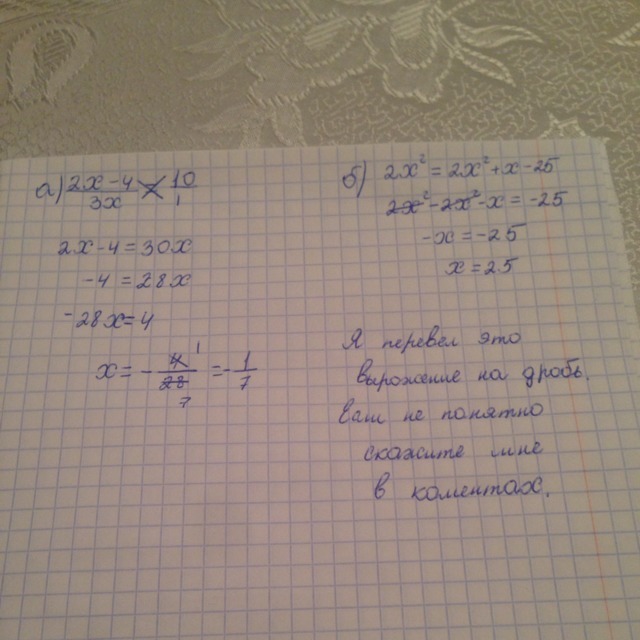 а) 2x-4/3x ⤫ 10/1
2x-4=30x
-4 =28x
-28x=4
x= -4/28 = -1/7
1
7
б) 2x²=2x²+x-25
2x²-2x²-x= -25
-x=-25
x=25
Я перевел это
вырожение на дробь.
вам не понятно
скажите мне
в коментах.